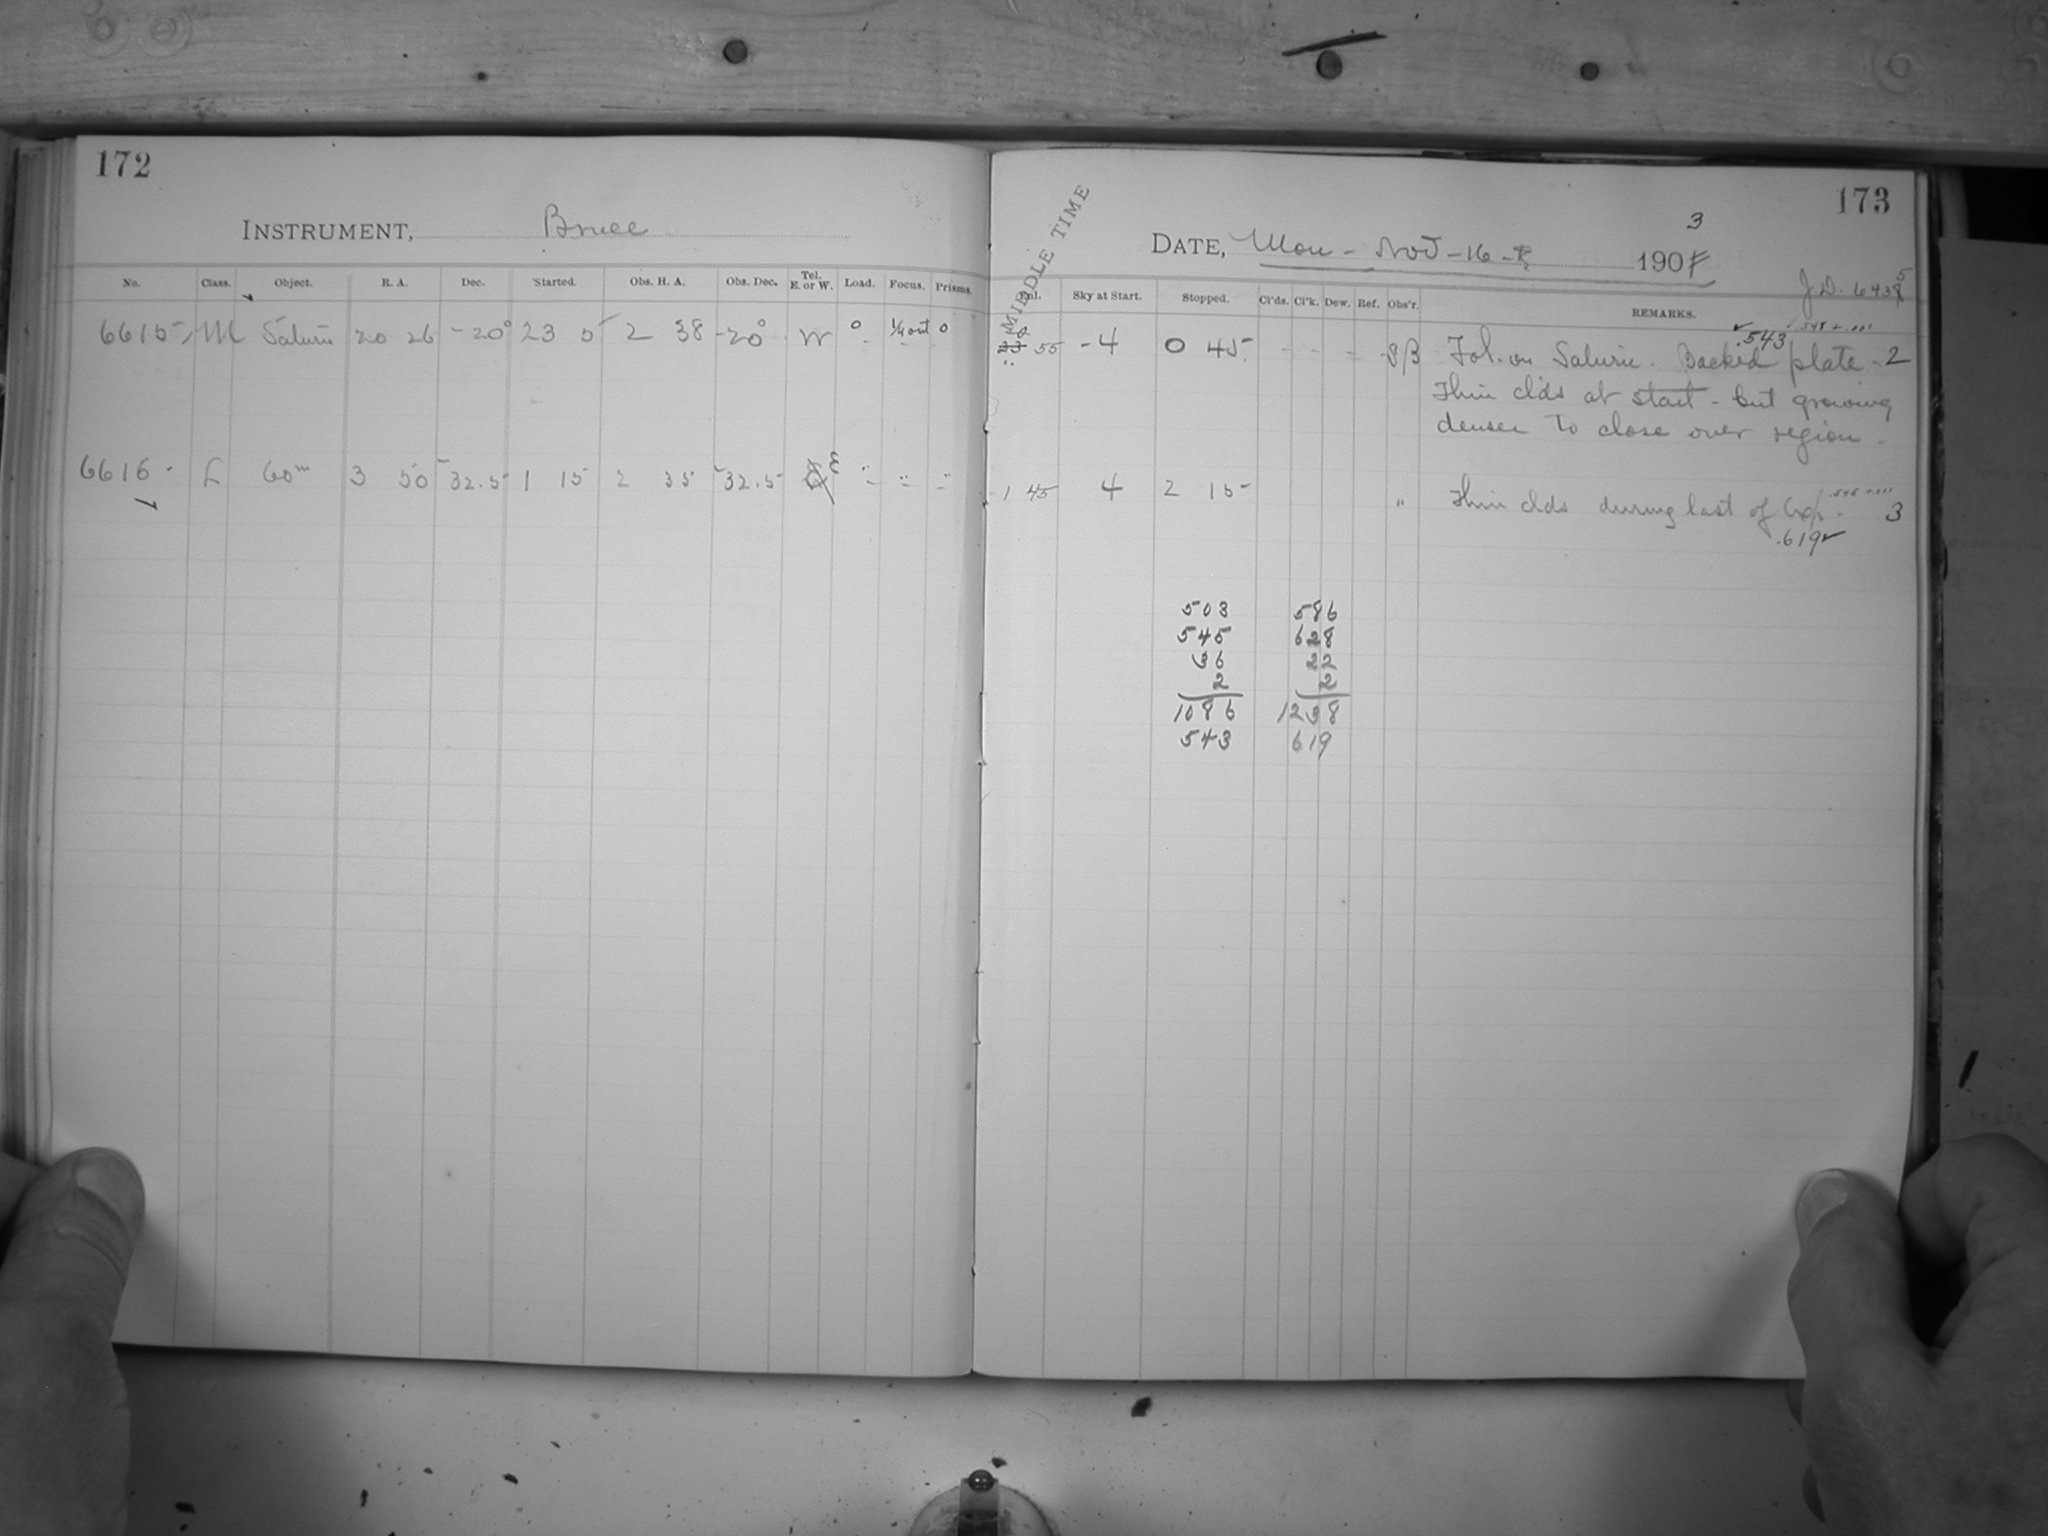 172
INSTRUMENT, Bruce
No. Class. Object. R. A. Dec. Started. Obs. H. A. Obs. Dec. Tel. E. or W. Load. Focus. Prisms.
6615 M Saturn 20 26 -20° 23 5 2 38 -20° W 0 1/4 out 0
6616 L 60m 3 50 -32.5 1 15 2 35 -32.5 E
173
MIDDLE TIME
DATE, Mon - Nov - 16 - 1903
J.D. 6435
Sky at Start. Stopped. Cl'ds. Cl'k. Dew. Ref. Obs'r. REMARKS.
.543
55 -4 0 45 Fol. on Saturn. Backed plate - 2
Thin clds at start - but growing
denser to close over region -
1 45 4 2 15 " Thin clds during last of Exp. 3
.619
503 586
545 628
36 22
2 2
1086 1238
543 619